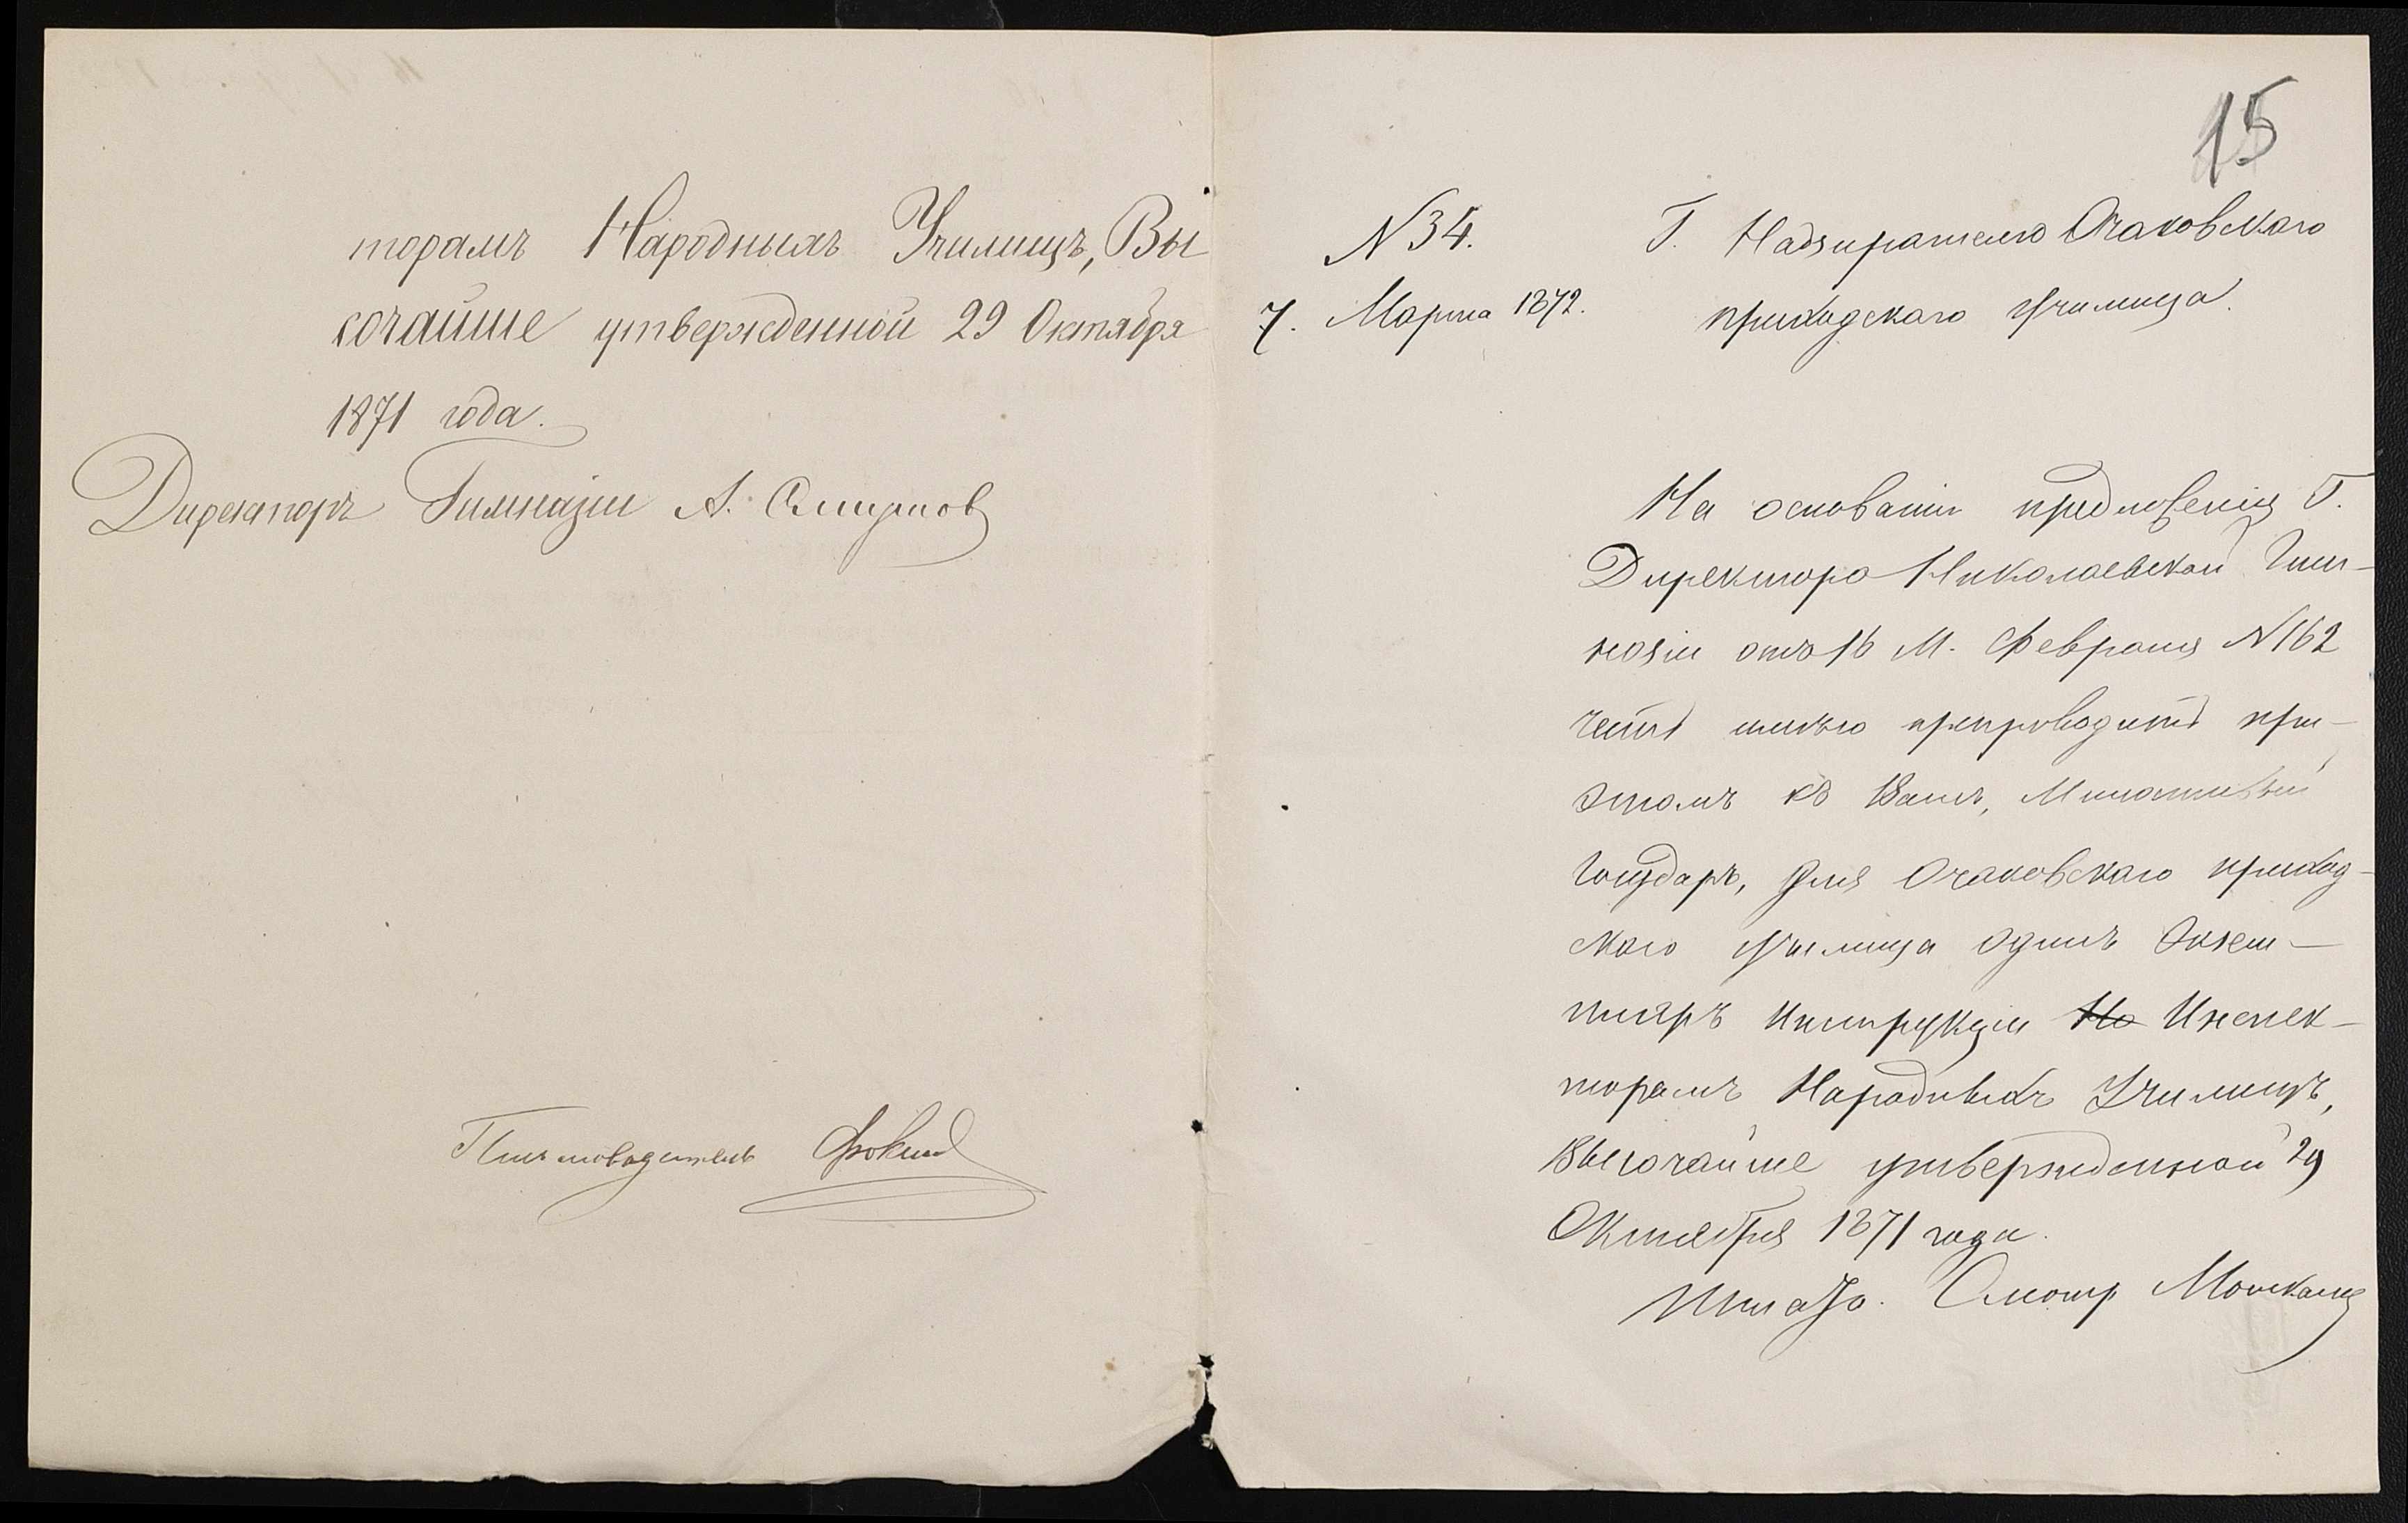 торамъ Народныхъ Училищъ, Вы
сочайше утвержденной 29 Октября
1871 года.
Директоръ Гимназіи А.
Письмоводитель Фокинъ
15
N 34.
7. Марта 1872.
Г. Надзирателю Очаковскаго
приходскаго училища.
На основаніи предложенія Г.
Директора Николаевской Гим-
назіи отъ 16 М. Февраля N 162
честь имѣю препроводить при
этомъ къ Вамъ, Милостивый
Государь, для Очаковскаго приход-
скаго училища одинъ экзем-
пляръ Инструкціи Ин Инспек-
торамъ Народныхъ Училищъ,
Высочайше утвержденной 29
Октября 1871 года.
Штатъ. Смотр